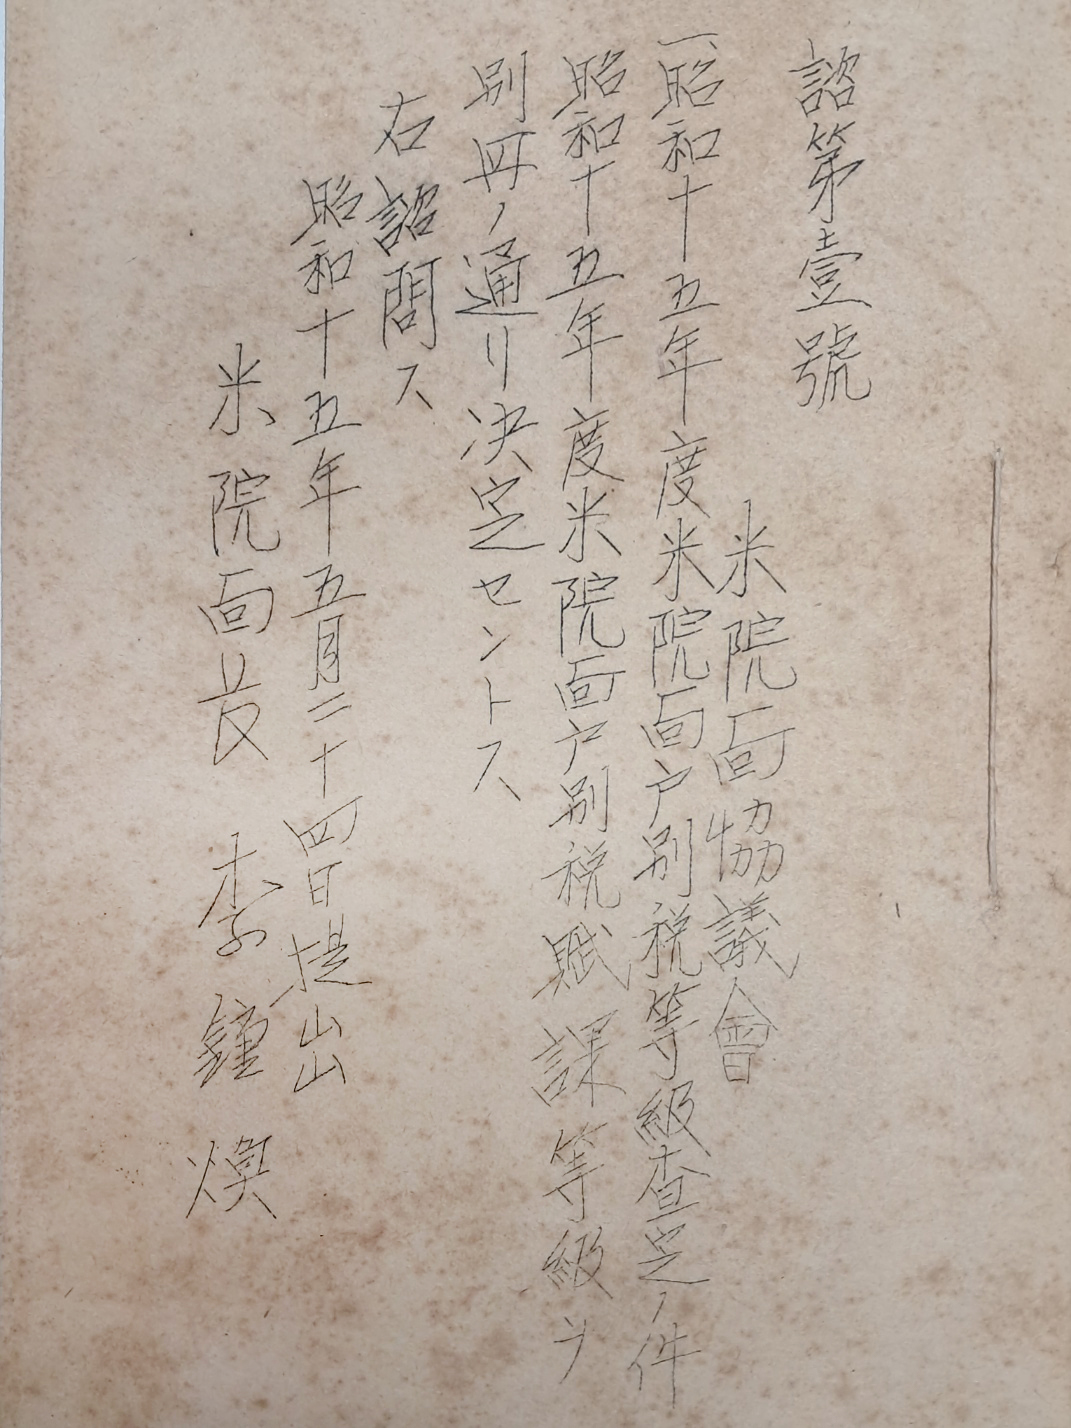 諮第壹號
米院面協議會
一、昭和十五年度米院面戸別税等級査定ノ件
昭和十五年度米院面戸別税賦課等級ヲ
別冊ノ通リ決定セントス
右諮問ス
昭和十五年五月二十四日提出
米院面長 李鍾煥